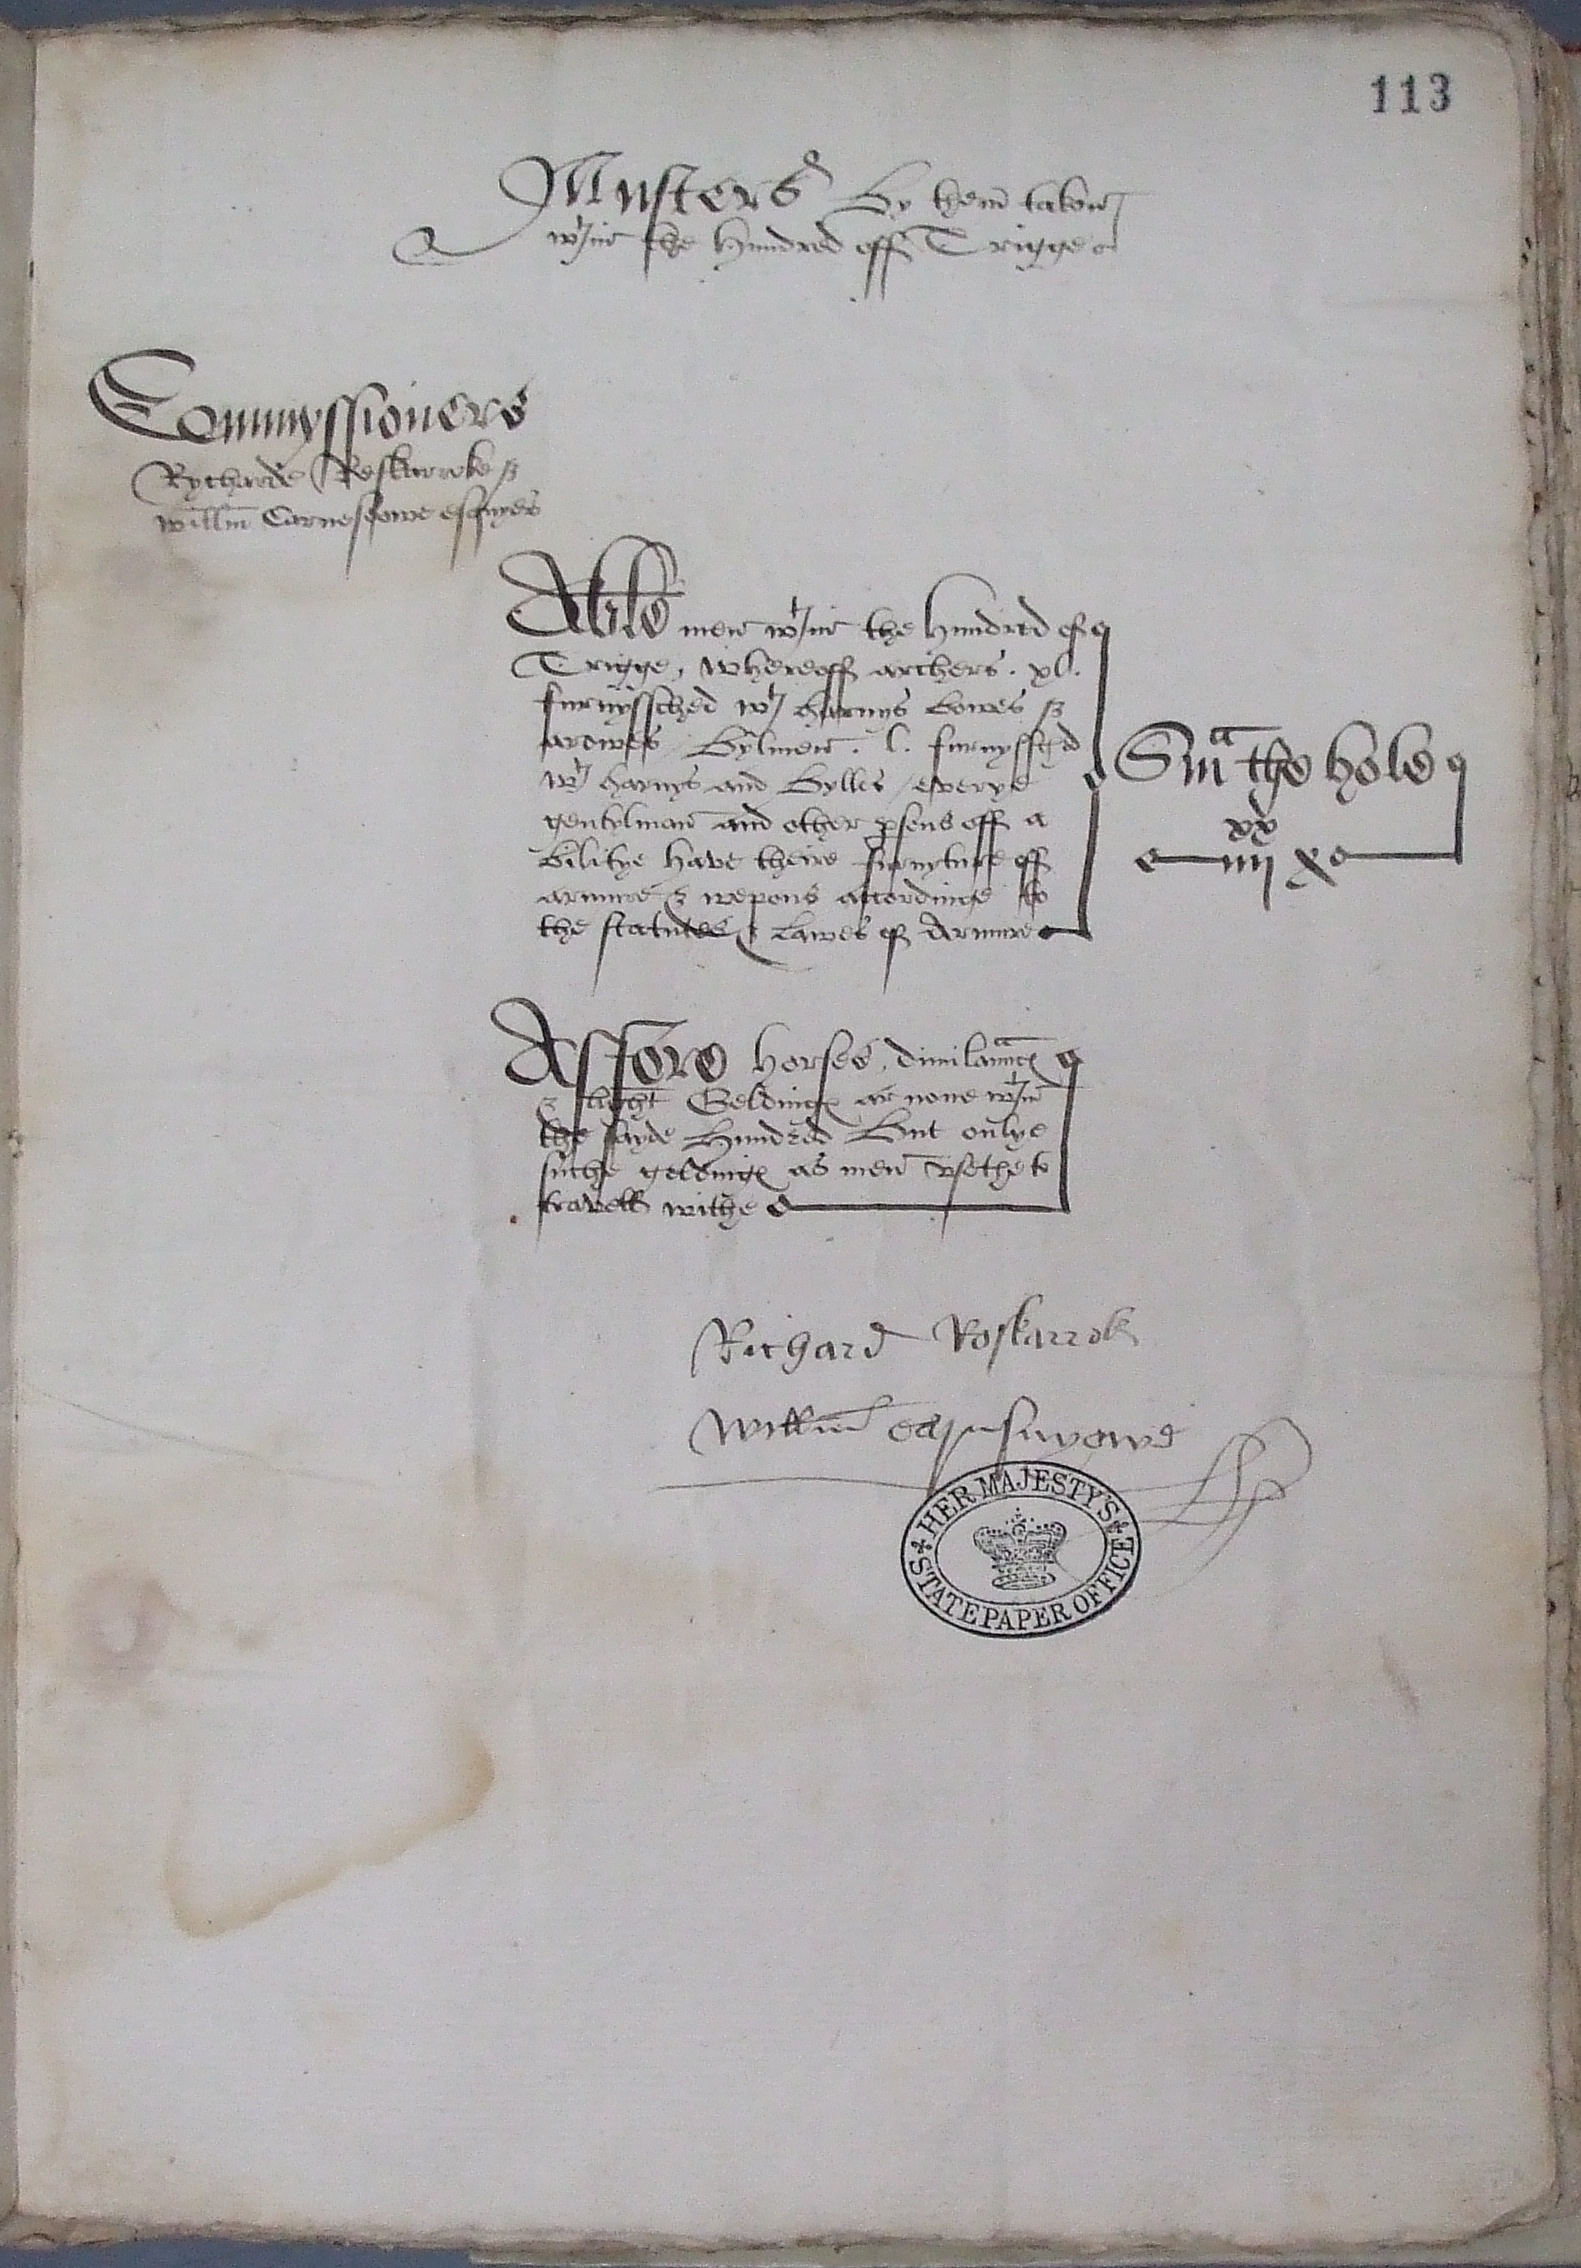 113
Musters By them taken
wt in the Hundred off Trigge
Commyssioners
Rycharde Roskarroke &
Willm Carnesyowe esquyes
Able men wt in the Hundred of
Trigge, whereoff archers . xl.
furnyssched wt harnys bowes &
arowes / Bylmen . l. furnysshed
wt harnys and Bylles / everye
gentylman and other psons off a
bilitye have theire furnyture off
armure & wepons accordinge to
the statutes & lawes of Armure
Sma the hole
xx
iiij x
As for horses, dimilances
& light Geldinges ar none wt in
the sayde Hundred But onlye
suche geldinges as men vsethe to
travell withe
Richard Roskarrok
Willm
HER MAJESTY'S
STATE PAPER OFFICE